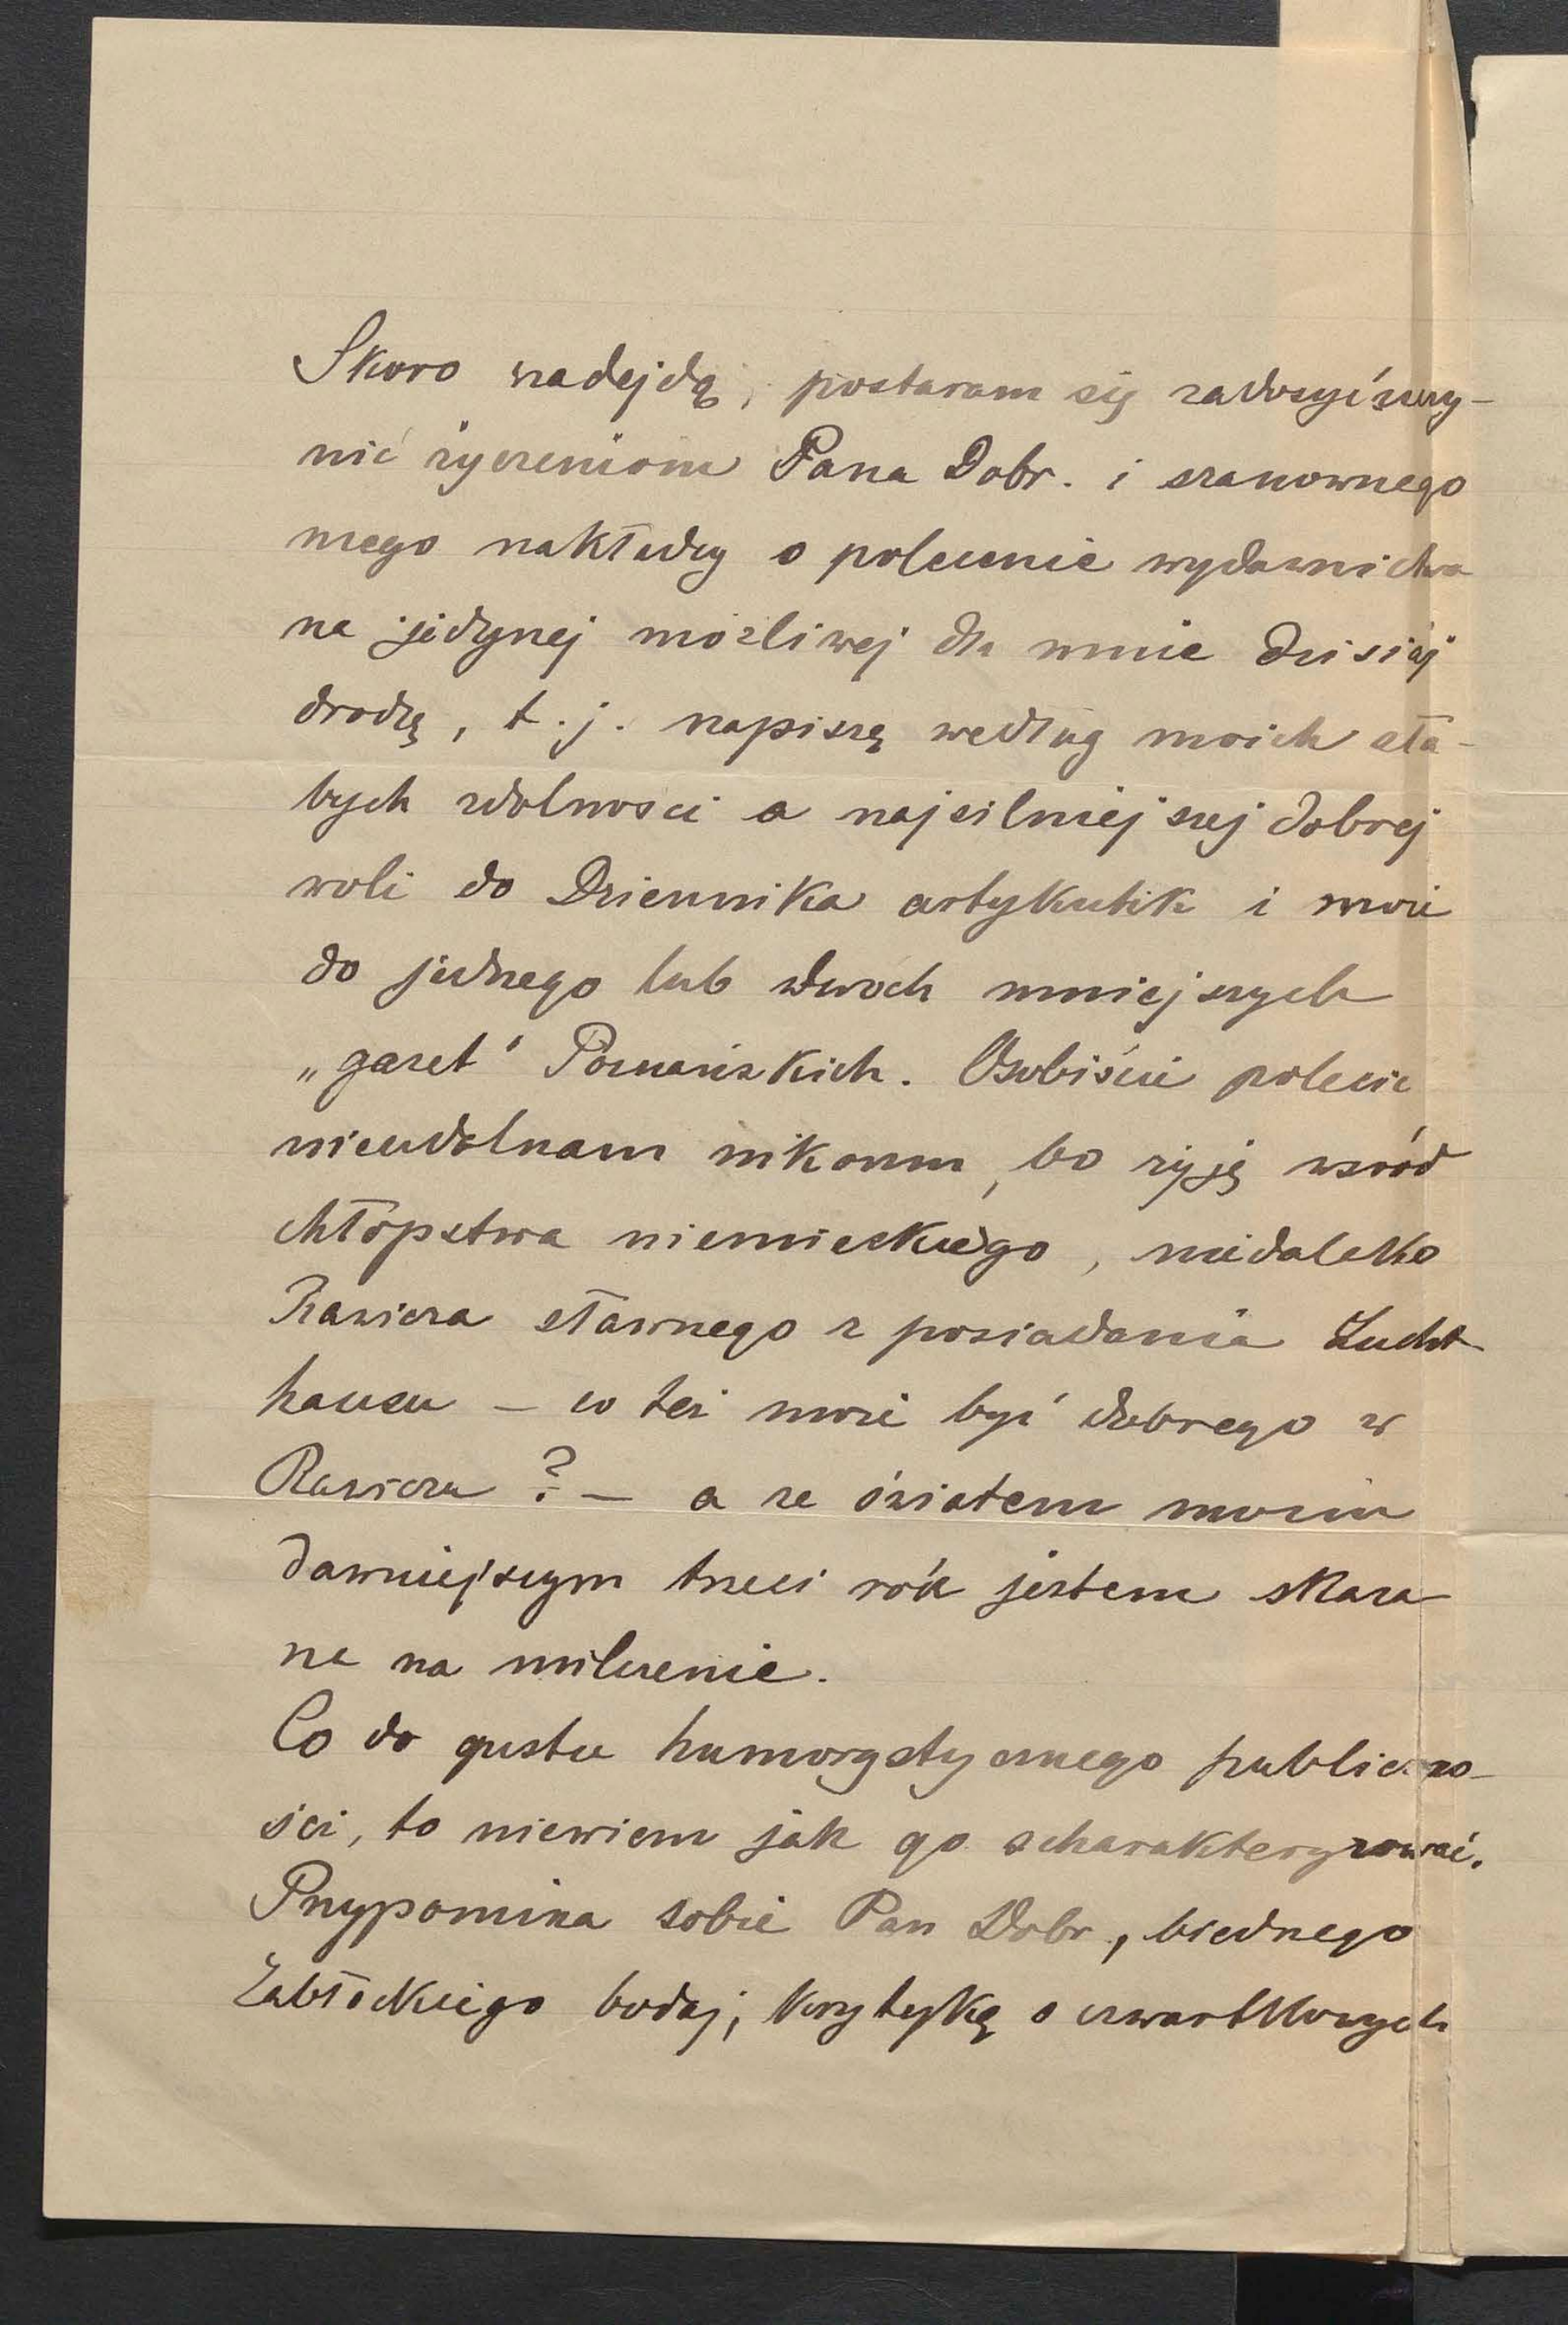 Skoro nadejdą, postaram się zadosyćuczy-
nić życzeniom Pana Dobr. i szanownego
mego nakładcy o polecenie wydawnictwa
na jedynej możliwej dla mnie dzisiaj
drodzę, t. j. napiszę według moich sła-
bych zdolności a najsilniejszej dobrej
woli do Dziennika artykulik i może
do jednego lub dwoch mniejszych
„gazet" Poznańskich. Osobiście polecić
niezdolnam nikomu, bo żyję wsród
chłopstwa niemieckiego, niedaleko
Rawicza sławnego z posiadania Zucht-
hausu – co też może być dobrego w
Rawiczu? – a ze światem moim
dawniejszym trzeci rok jestem skaza
na na milczenie.
Co do gustu humorystycznego publiczno-
ści, to niewiem jak go scharakteryzować.
Przypomina sobie Pan Dobr., biednego
Zabłockiego bodaj, krytykę o czwartkowych